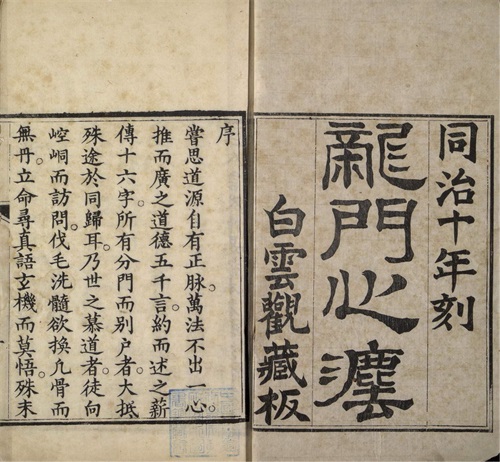 同治十年刻
龍門心灋
白雲觀藏板
序
嘗思道源自有正脉。萬法不出一心。
推而廣之道德五千言約而述之薪
傳十六字。所有分門而别户者大抵
殊途於同歸耳。乃世之慕道者。徒向
崆峒而訪問。伐毛洗髓欲換凢骨而
無丹。立命尋真語玄機而莫悟。殊未